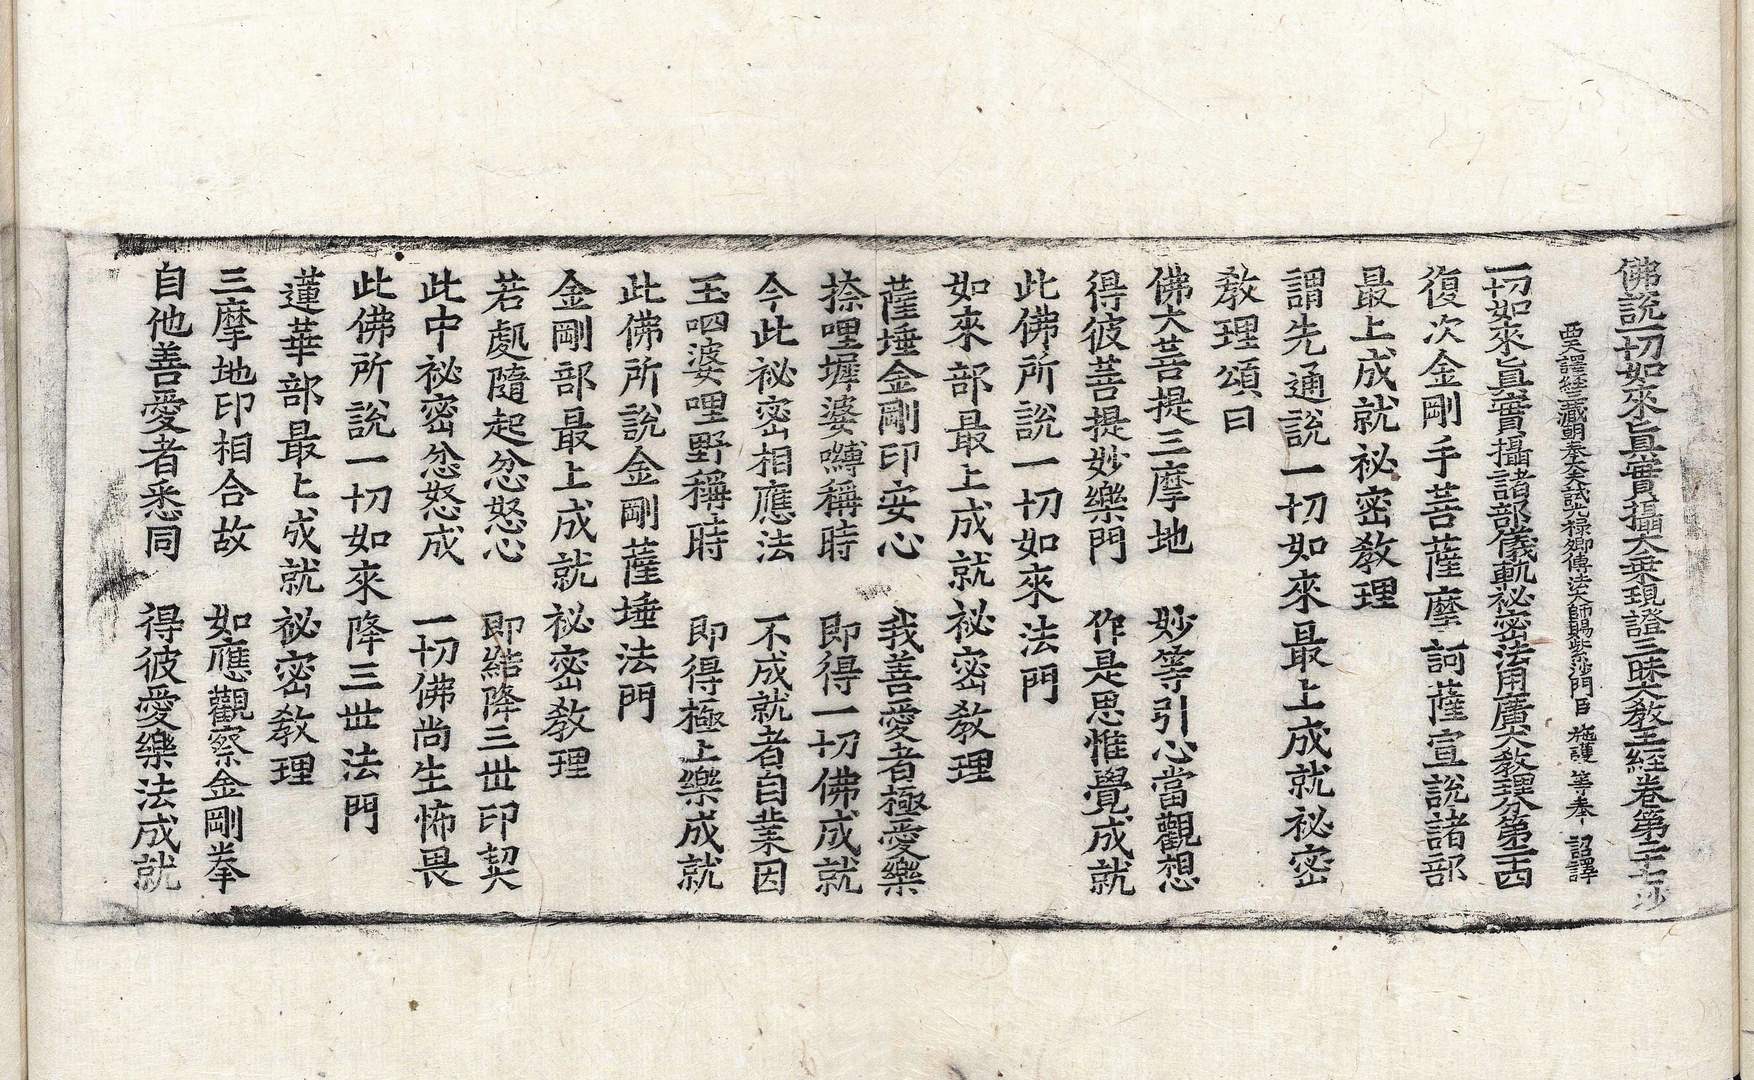 佛說一切如來眞實攝大乘現證三昧大教王經卷第二十七 沙
西天譯經三藏朝奉大夫試光祿卿傳法大師賜紫沙門臣 施護 等奉 詔譯
一切如來眞實攝諸部儀軌祕密法用廣大教理分第二十四
復次金剛手菩薩摩訶薩宣說諸部
最上成就祕密教理
謂先通說一切如來最上成就祕密
教理頌曰
佛大菩提三摩地 妙等引心當觀想
得彼菩提妙樂門 作是思惟覺成就
此佛所說一切如來法門
如來部最上成就祕密教理
薩埵金剛印安心 我善愛者極愛樂
捺哩墀婆嚩稱時 即得一切佛成就
今此祕密相應法 不成就者自業因
玉呬婆哩野稱時 即得極上樂成就
此佛所說金剛薩埵法門
金剛部最上成就祕密教理
若處隨起忿怒心 即結降三世印契
此中祕密忿怒成 一切佛尚生怖畏
此佛所說一切如來降三世法門
蓮華部最上成就祕密教理
三摩地印相合故 如應觀察金剛拳
自他善愛者悉同 得彼愛樂法成就